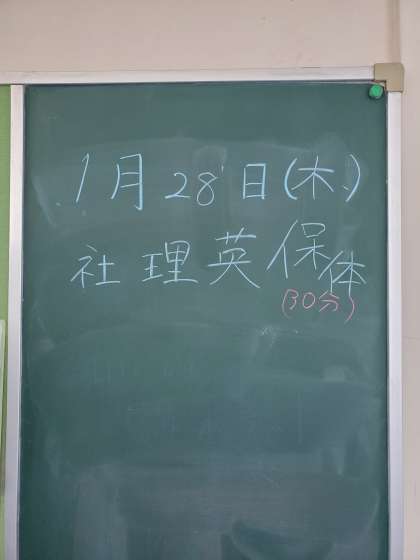 1月28日(木)
社理英保体
(30分)